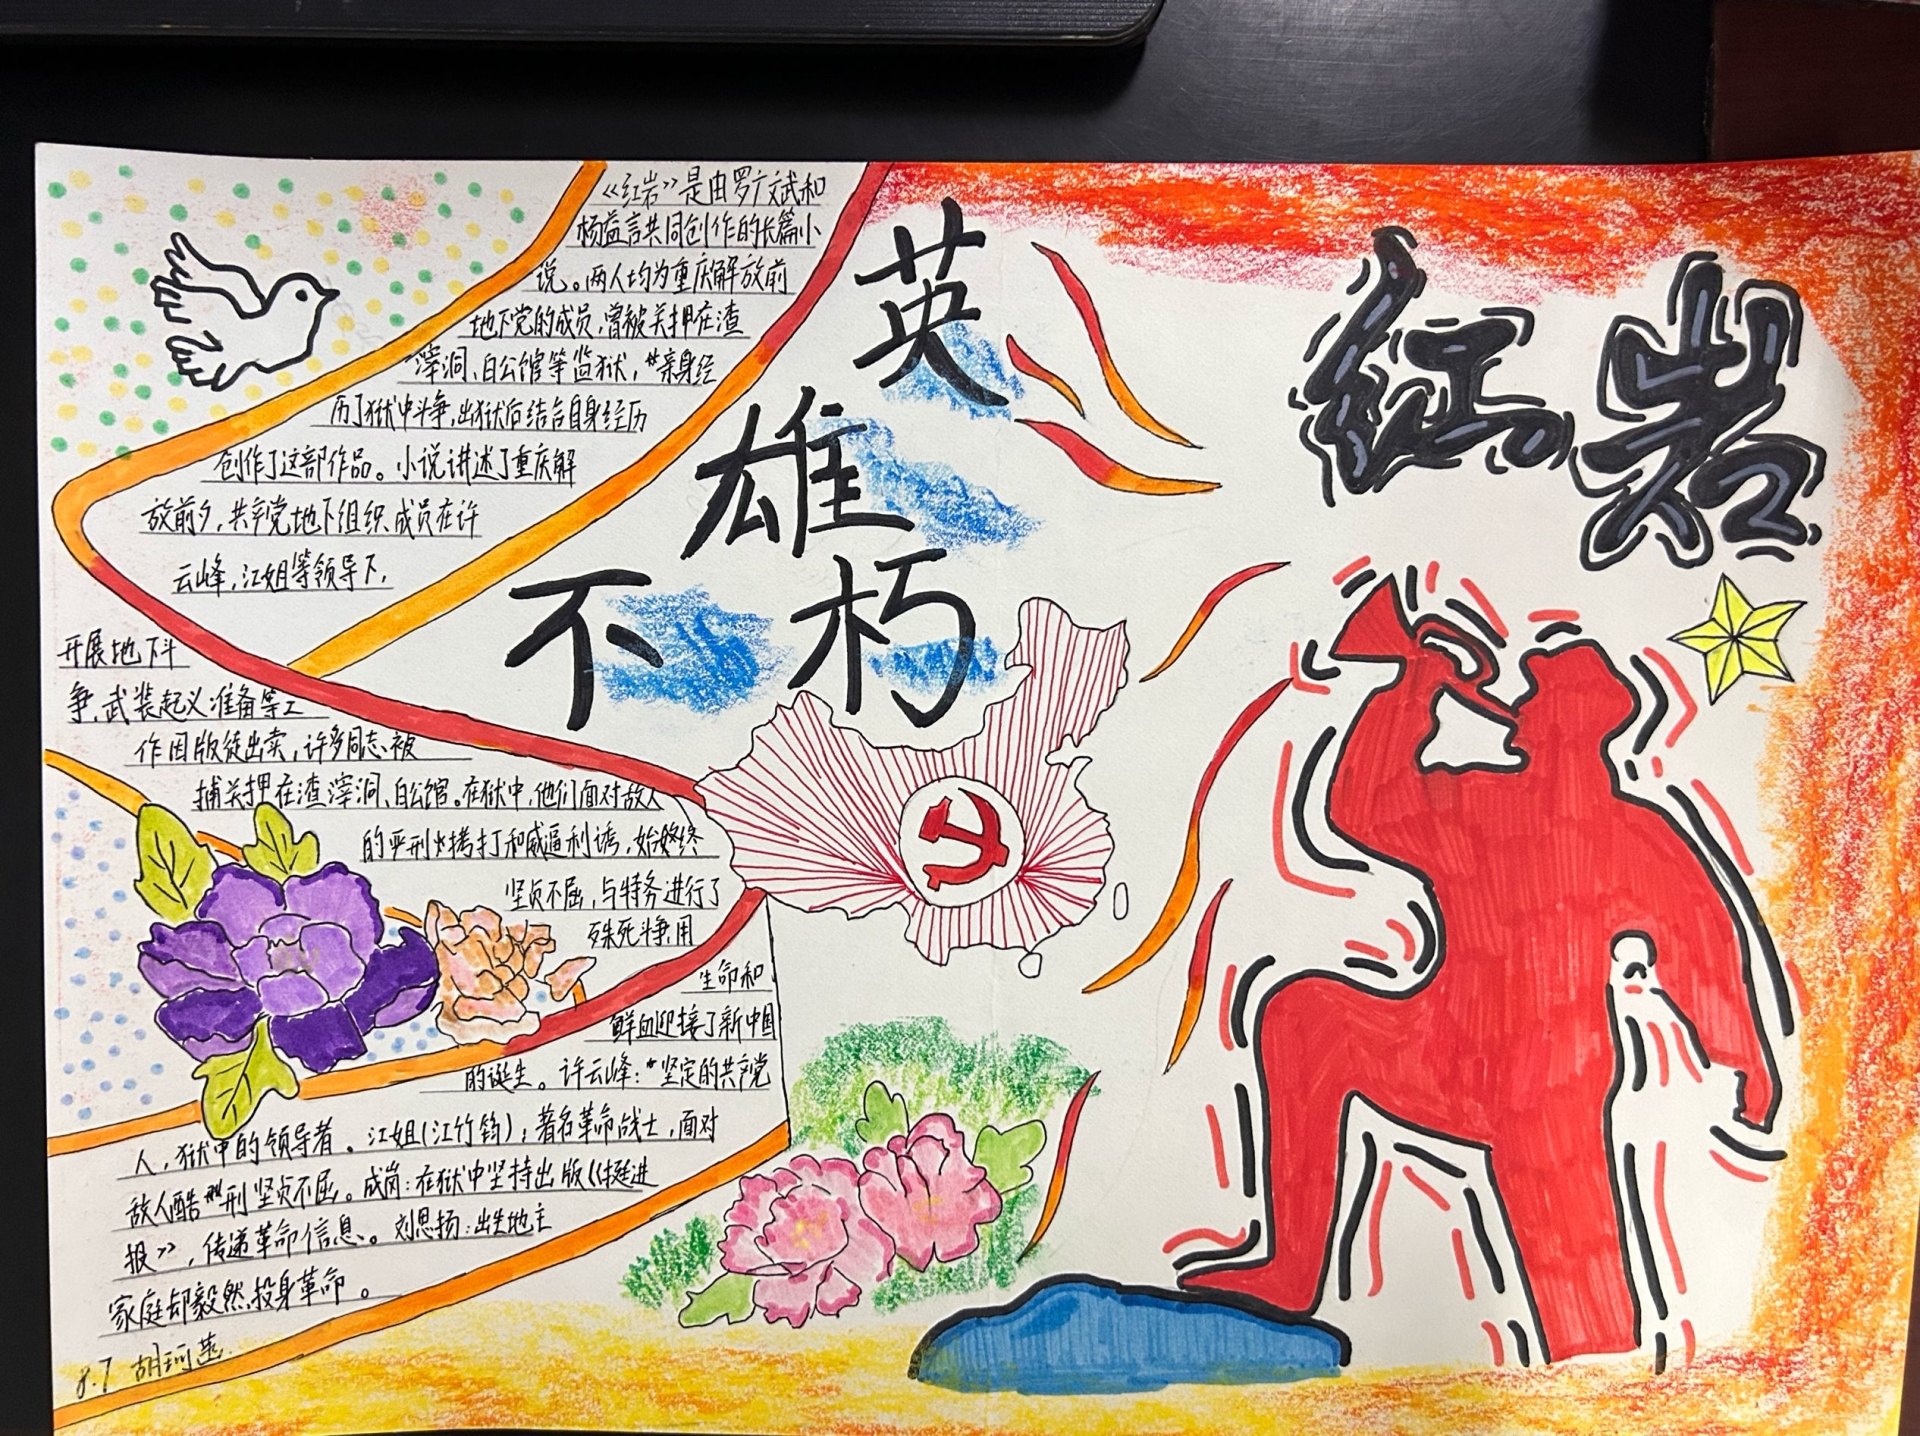 红岩
英
雄
不朽
《红岩》是由罗广斌和
杨益言共同创作的长篇小
说。两人均为重庆解放前
地下党的成员,曾被关押在渣
滓洞、白公馆等监狱,亲身经
历了狱中斗争,出狱后结合自身经历
创作了这部作品。小说讲述了重庆解
放前夕,共产党地下组织成员在许
云峰,江姐等领导下,
开展地下斗
争,武装起义准备等工
作因版徒出卖,许多同志被
捕关押在渣滓洞、白公馆。在狱中,他们面对敌人
的严刑拷打和威逼利诱,始终
坚贞不屈,与特务进行了
殊死斗争,用
生命和
鲜血迎接了新中国
的诞生。许云峰:坚定的共产党
人,狱中的领导者。江姐(江竹筠):著名革命战士,面对
敌人酷刑坚贞不屈。成岗:在狱中坚持出版《挺进
报》,传递革命信息。刘思扬:出生地主
家庭却毅然投身革命。
8.7 胡珂燕